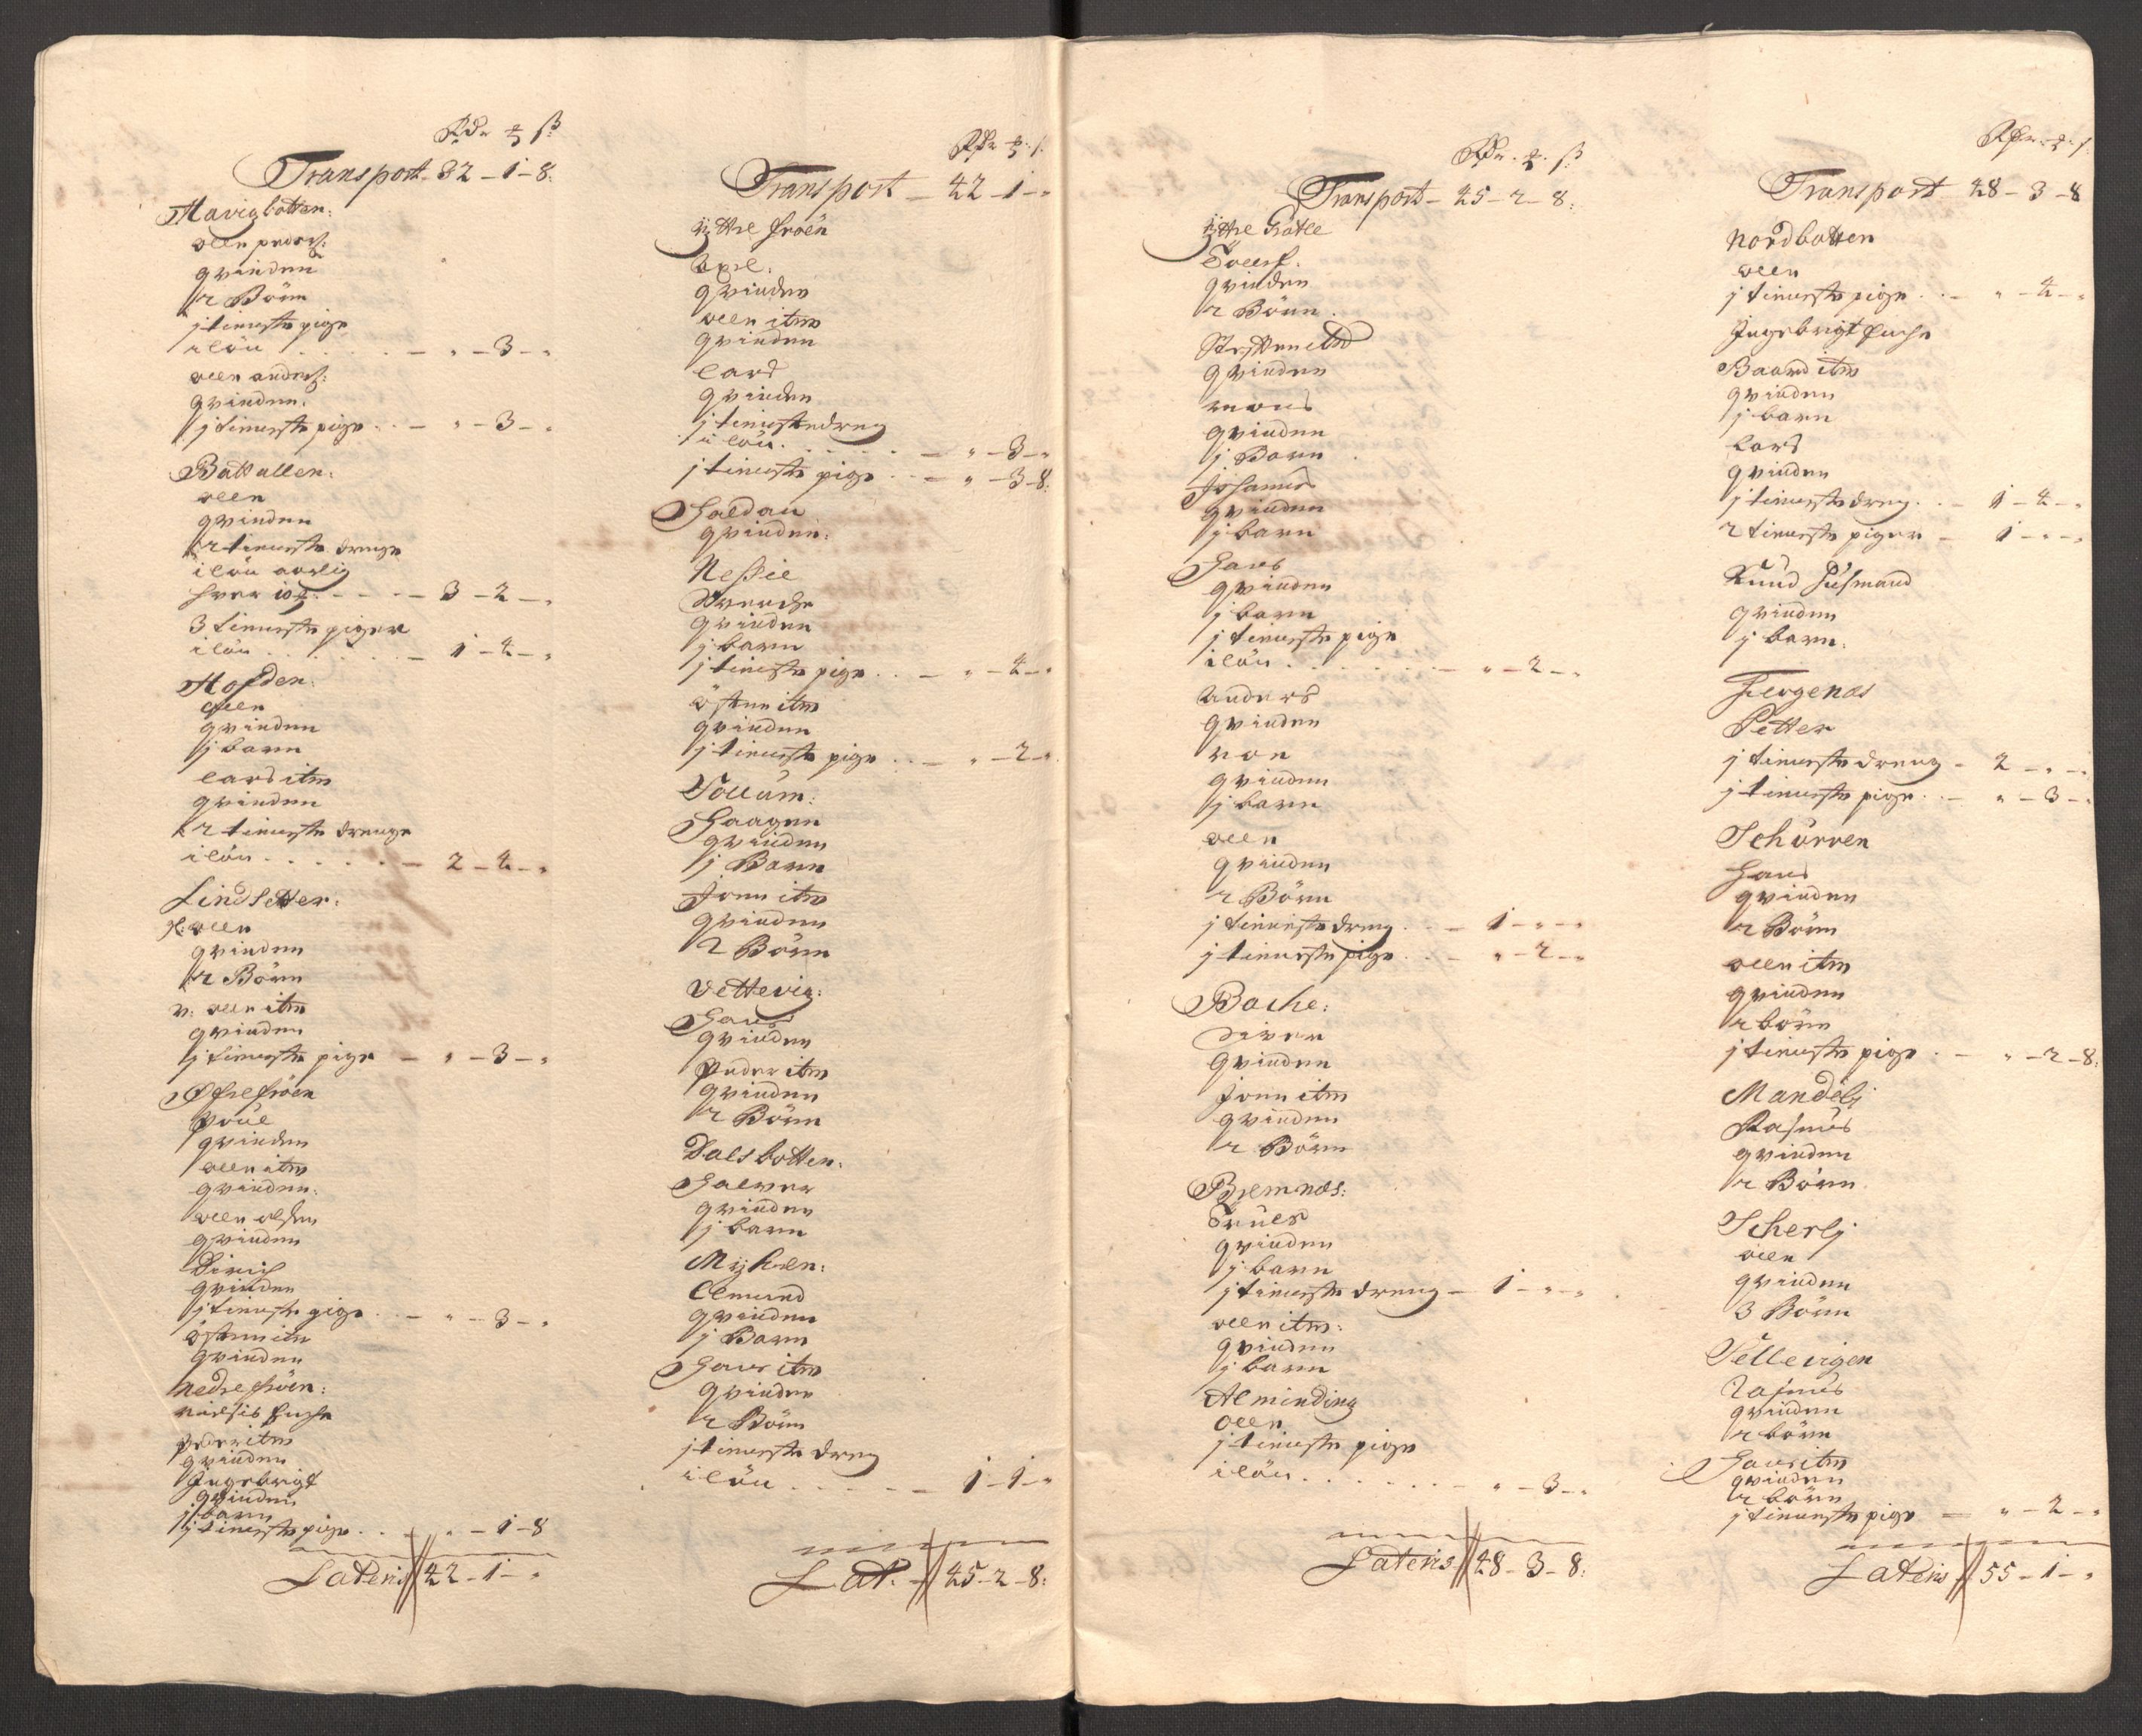 Rdr ß
Transport 32-1-8:
Havigbotten:
olle peders:
qvinden
2 Börn
j tieneste pige
i lön . . . . - " - 3 - "
olle anders:
qvinden:
j tieneste pige . . - " - 3 - "
Battallen:
olle
qvinden
2 tieneste drenge
i lön aarlig
hver - - - 3 - 2 - "
3 tieneste piger
i lön . . . . - 1 - 4 - "
Hofden:
olle
qvinden
j barn
lars itm
qvinden
2 tieneste drenge
i lön . . . . - 2 - 4 - "
Lindsetter:
olle
qvinden
2 Börn
olle itm
qvinden
j tieneste pige - " - 3 - "
Öfre fröen
Poul
qvinden
olle itm
qvinden:
olle olsen
qvinden
Dirich
qvinden
j tieneste pige . . - " - 3 - "
östen itm
qvinden
Nedre fröen:
peder itm
qvinden
Ingebrigt
qvinden
j barn
j tieneste pige . . - " - 1 - 8
Lateris 42 - 1 - "
Rdr
Transport - 42 - 1 - "
ÿttre fröen
Axel:
qvinden
olle itm
qvinden
Lars
qvinden
j tieneste dreng
i lön . . . . - " - 3 - "
j tieneste pige . . - " - 3 - 8:
Haldau
qvinden:
Nessie
Sverche
qvinden
j barn
j tieneste pige . . - " - 4 - "
östen itm
qvinden
j tieneste pige . . - " - 2 - "
Hollum:
Haagen
qvinden
j Barn
Jonn itm
qvinden
2 Börn
Vettevig:
Hans
qvinden
Peder itm
qvinden
2 Börn
Dalsbotten:
Halver
qvinden
j barn
Myhren:
Elmund
qvinden
j Barn
Hans itm
qvinden
2 Börn
j tieneste dreng
i lön . . . . - 1 - 1 - "
Lat: - 45 - 2 - 8:
Rdr ß
Transport - 45 - 2 - 8:
ÿttre Gröttle
Tollef:
qvinden
2 Börn
qvinden
mons
qvinden
j Barn
Johannes
qvinden
j barn
Hans
qvinden
j barn
j tieneste pige
i lön . . . . - " - 2 - "
Anders
qvinden
roe
qvinden
j barn
olle
qvinden
2 Börn
j tieneste dreng . . - 1 - " - "
j tieneste pige . . - " - 2 - "
Bache:
Siver
qvinden
Jonn itm
qvinden
2 Börn
Bremnes:
Truels
qvinden
j barn
j tieneste dreng - 1 - " - "
olle itm:
qvinden
j barn
Alminding
Olle
j tieneste pige
i lön . . . . - " - 3 - "
Lateris 48 - 3 - 8:
Rdr
Transport 48 - 3 - 8
Nordbotten
olle
j tieneste pige . . - " - 4 - "
Ingebrigt
Baard itm
qvinden
j barn
lars
qvinden
j tieneste dreng . . - 1 - 4 - "
2 tieneste piger - 1 - " - "
Knud Husmand
qvinden
j barn:
Fergenes
Petter
j tieneste dreng - 2 - " - "
j tieneste pige . . - " - 3 - "
Schorven
Hans
qvinden
2 Börn
olle itm
qvinden
2 börn
j tieneste pige . - " - 2 - 8:
Mandelj
Rasmus
qvinden
2 Börn
Scherlj
olle
qvinden
3 Börn
Sellevigen
Rasmus
qvinden
2 börn
Hans itm
qvinden
2 börn
j tieneste pige - " - 2 - "
Lateris 55 - 1 - "